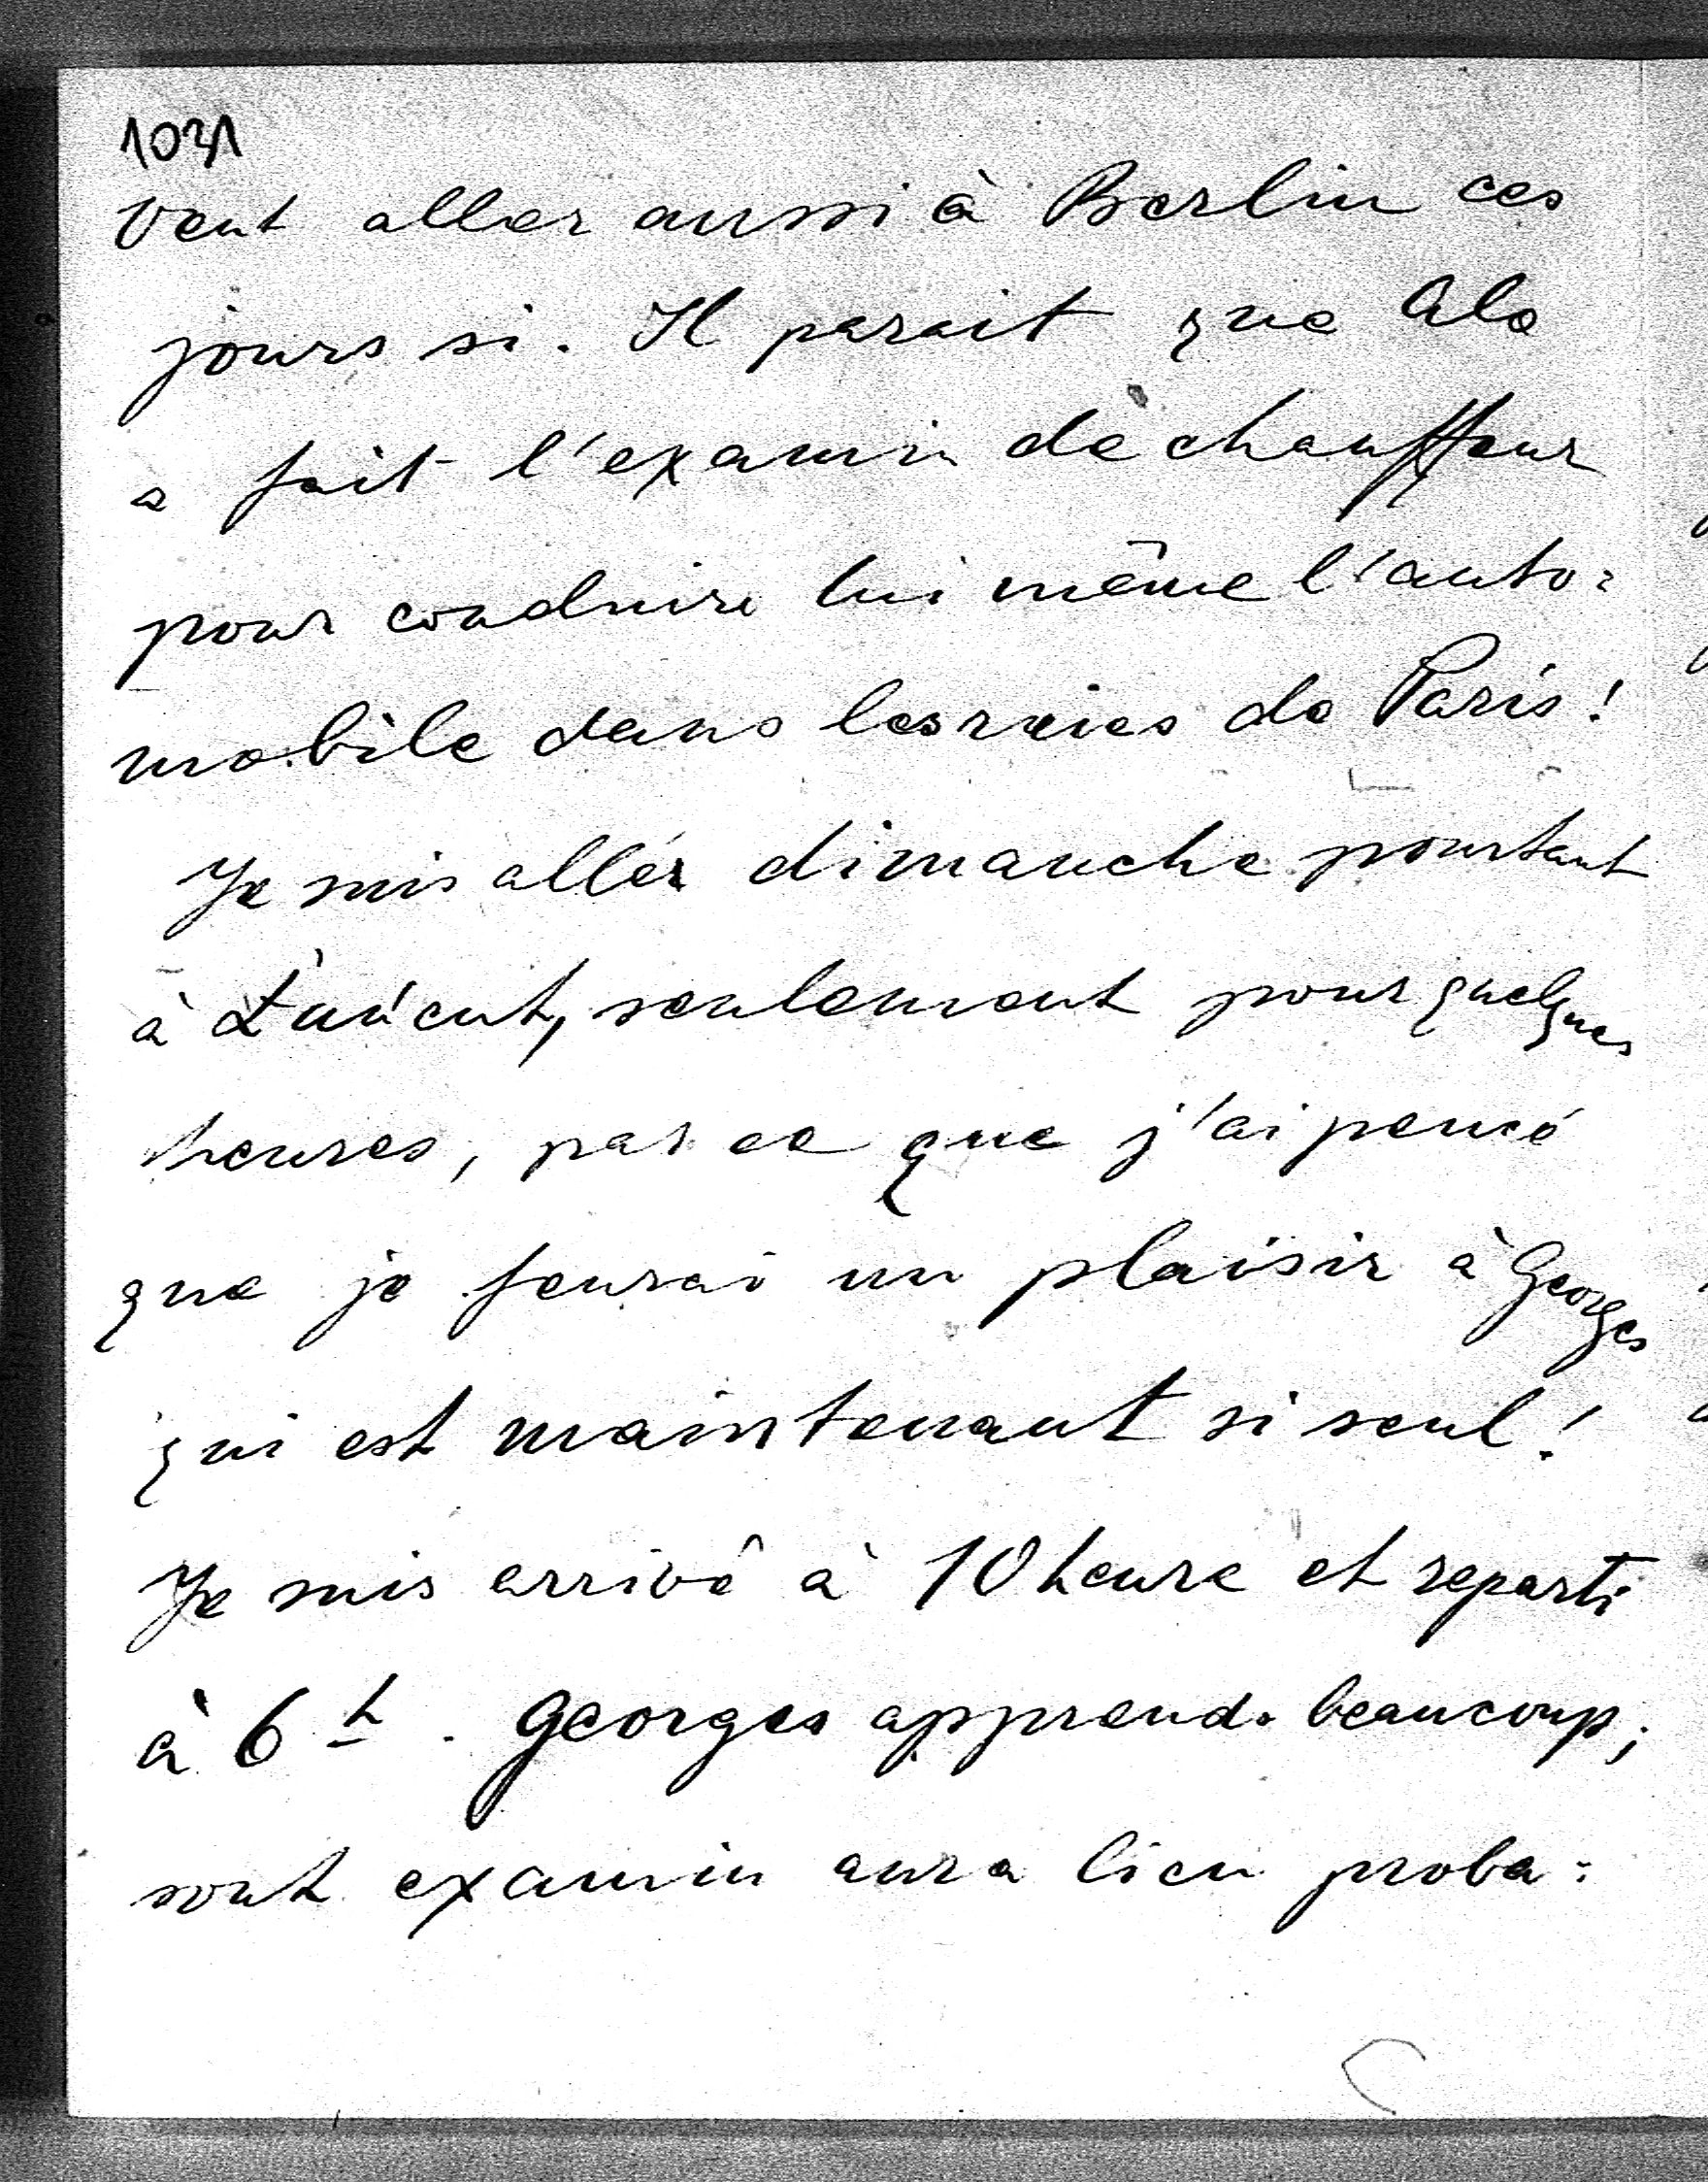 1031
veut aller aussi à Berlin ces
jours si. Il parait que Alo
a fait l'examin de chauffeur
pour conduire lui même l'auto=
mobile dans les rues de Paris!
Je suis allér dimanche pourtant
à Łańcut, seulement pour quelques
heures, par ce que j'ai pencé
que je feurai un plaisir à Georges
qui est maintenant si seul!
Je suis arrivé à 10 heure et reparti
à 6 h. Georges apprend beaucoup;
sont examin aura lieu proba=